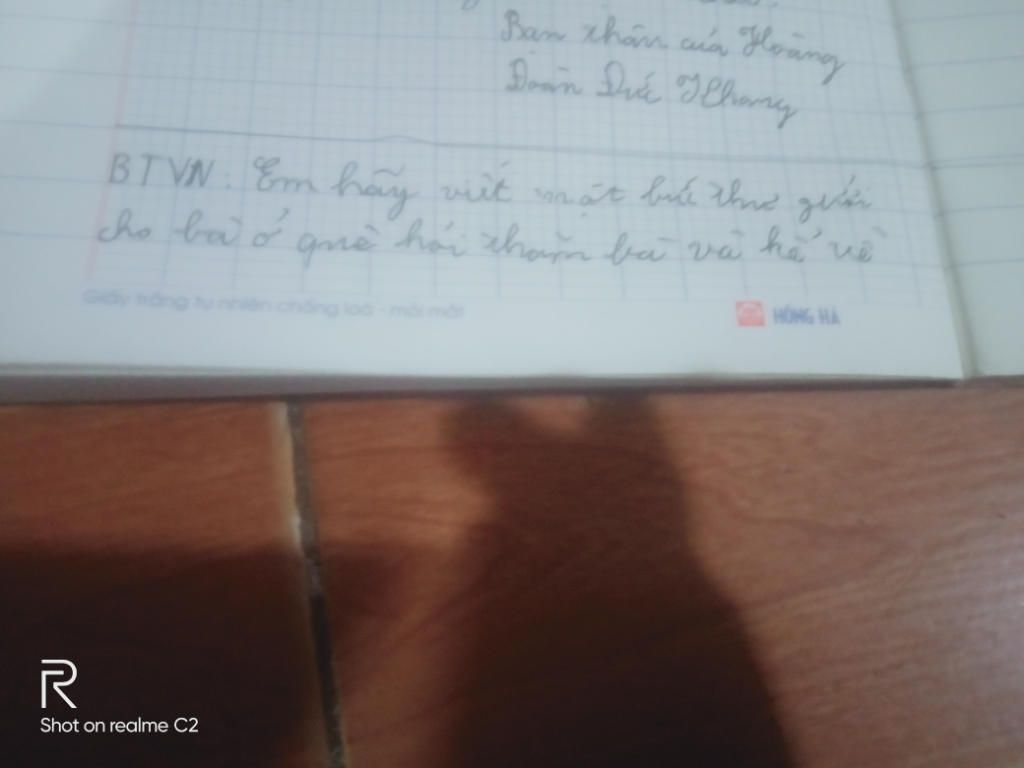 Bạn thân của Hoàng
Đoàn Đức
BTVN: Em hãy viết một bức thư gửi
cho bà ở quê hỏi thăm bà và kể về
Giấy trắng tự nhiên chống loá - mỏi mắt
HỒNG HÀ
R
Shot on realme C2